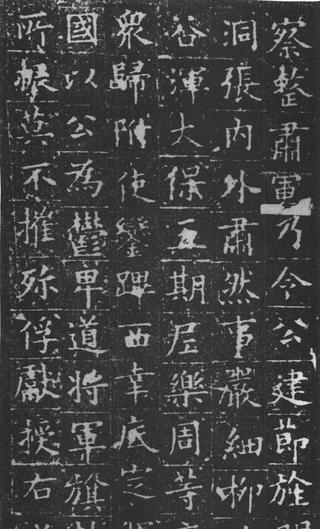 察整肅軍乃今公建節旌
洞張内外肅然事嚴細柳
谷渾大保五期尼樂周等
衆歸附使鑾蹕西幸底定
國以公為鬱卑道將軍旗
所振莫不摧殄俘獻授右